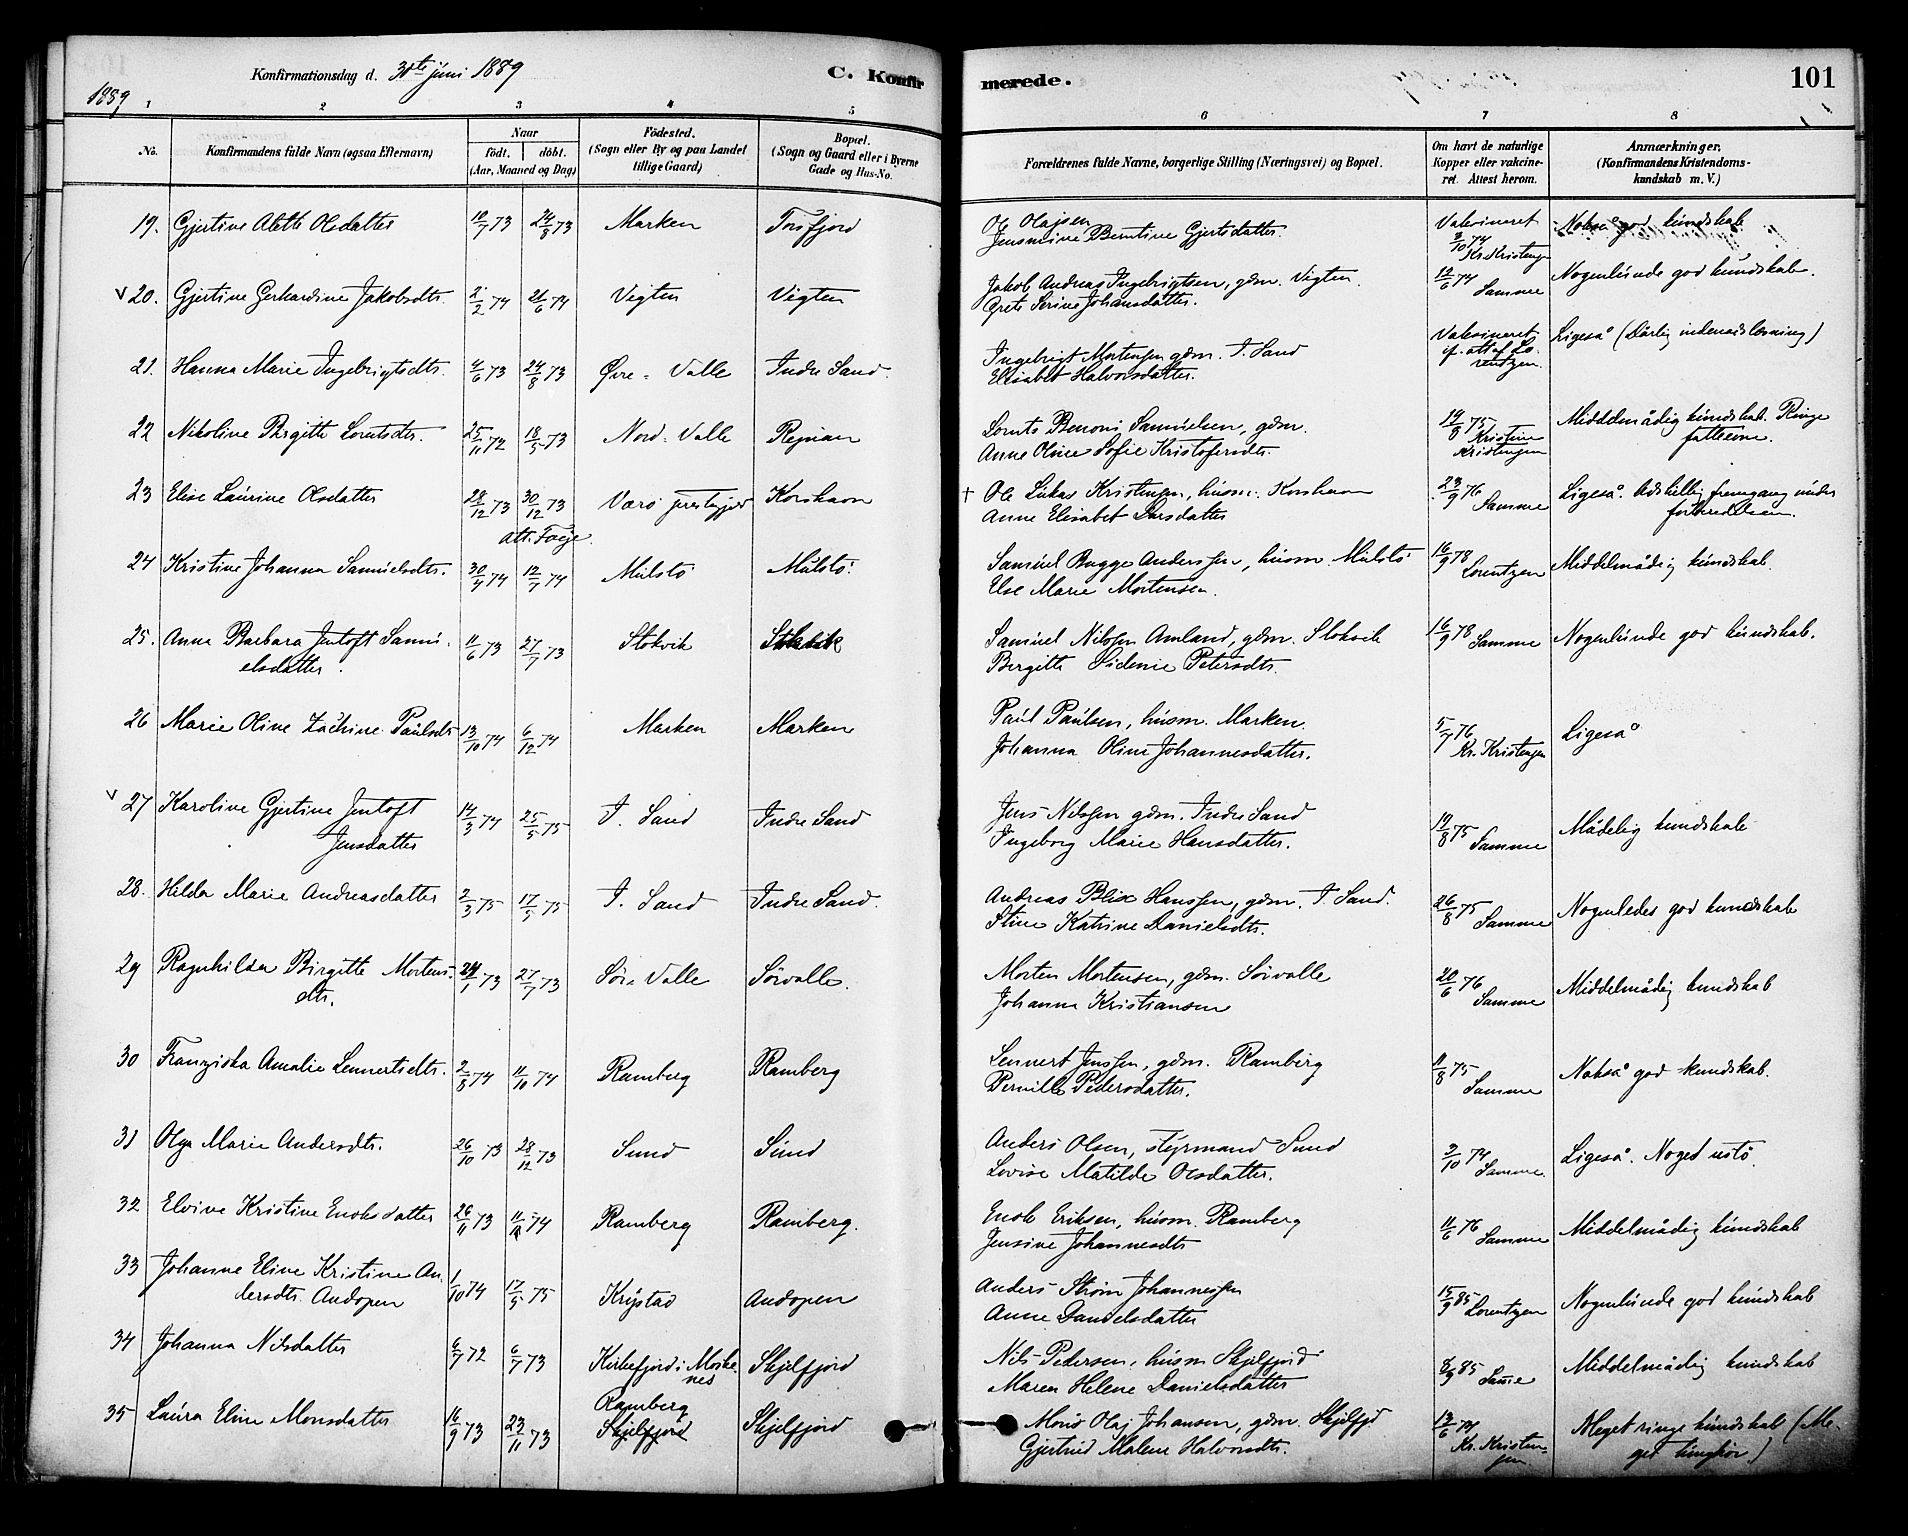 Konfirmationsdag d. 30te juni 1889
C. Konfirmerede.
101
1889
1 2 3 4 5 6 7 8
No.
Konfirmandens fulde Navn (ogsaa Efternavn)
Naar
födt. döbt.
(Aar, Maaned og Dag)
Födested.
(Sogn eller By og paa Landet
tillige Gaard)
Bopæl.
(Sogn og Gaard eller i Byerne
Gade og Hus-No.
Forældrenes fulde Navne, borgerlige Stilling (Næringsvei) og Bopæl.
Om havt de naturlige
Kopper eller vakcine-
ret. Attest herom.
Anmærkninger.
(Konfirmandens Kristendoms-
kundskab m. V.)
19. Gjertine Aleth Olsdatter 10/7 73 24/8 73 Marken Torsfjord
Ole Olajsen
Jensmine Berntine Gjertsdatter.
Vakcineret 3/10 74 Kr. Kristensen
Nokså god kundskab
20. Gjertine Gerhardine Jakobsdtr. 2/2 74 21/6 74 Vigten Vigten
Jakob Andreas Ingebrigtsen, gdm. Vigten.
Grete Serine Johansdatter.
12/6 74 Samme
Nogenlunde god kundskab.
21. Hanna Marie Ingebrigtsdtr. 4/6 73 24/8 73 Øvre-Valle Indre Sand.
Ingebrigt Mortensen gdm. I. Sand
Elisabet Halvorsdatter.
Vakcineret if. att. af Lorentzen.
Ligeså (Dårlig indenadslæsning)
22 Nikoline Birgitte Lorntsdtr. 25/11 72 18/5 73 Nord-Valle Repian
Lornts Benoni Samuelsen, gdm.
Anne Oline Sofie Kristofersdtr.
19/8 75 Kristine Kristensen
Middelmådig kundskab. Ringe
fatteevne.
23 Elise Laurine Olsdatter 28/12 73 30/12 73 Værø præstegjeld Korshavn
att. Foge.
† Ole Lukas Kristensen, husm. Korshavn
Anne Elisabet Larsdatter
23/9 76 Samme
Ligeså. Adskillig fremgang under
forberedelsen.
24 Kristine Johanna Samuelsdtr. 30/4 74 12/7 74 Mulstø Mulstø.
Samuel Bugge Anderssen, husm. Mulstø
Else Marie Mortensen.
16/9 78 Lorentzen
Middelmådig kundskab.
25. Anna Barbara Jentoft Samu-
elsdatter. 11/6 73 27/7 73 Stokvik Stokvik
Samuel Nilssen Amland, gdm. Stokvik
Bergitte Sidenie Petersdtr.
16/9 78 Samme
Nogenlunde god kundskab.
26 Marie Oline Zachrine Paulsdtr 13/10 74 6/12 74 Marken Marken
Paul Paulsen, husm. Marken.
Johanna Oline Johannesdatter.
5/7 76 Kr. Kristensen
Ligeså
27 Karoline Gjertine Jentoft
Jensdatter 14/3 74 25/5 75 I. Sand Indre Sand
Jens Nilssen gdm. Indre Sand
Ingeborg Marie Hansdatter.
19/8 75 Samme
Mådelig kundskab
28. Hilda Marie Andreasdatter 2/3 75 17/5 75 I. Sand Indre Sand.
Andreas Blix Hanssen, gdm. I. Sand.
Stine Katrine Danielsdtr.
26/8 75 Samme
Nogenledes god kundskab
29 Ragnhilda Birgitte Mortens-
dtr. 24/1 73 27/7 73 Sør-Valle Sørvalle.
Morten Mortensen, gdm. Sørvalle
Johanna Kristiansen
20/6 76 Samme
Middelmådig kundskab
30 Franziska Amalie Lennertsdtr. 2/8 74 11/10 74 Ramberg Ramberg
Lennert Jenssen, gdm. Ramberg
Pernille Pedersdatter.
11/8 75 Samme
Nokså god kundskab.
31 Olga Marie Andersdtr. 26/10 73 28/12 73 Sund Sund
Anders Olsen, styrmand Sund
Lovise Matilde Olsdatter.
3/10 74 Samme
Ligeså. Noget ustø.
32 Elvine Kristine Enoksdatter 26/11 73 74 Ramberg Ramberg.
Enok Eriksen, husm. Ramberg
Jensine Johannesdtr
11/6 76 Samme
Middelmådig kundskab
33 Johanne Eline Kristine An-
dersdtr. Andopen 1/10 74 17/5 75 Krystad Andopen
Anders Strøm Johannessen
Anne Danielsdatter
15/9 85 Lorentzen
Nogenlunde god kundskab
34 Johanna Nilsdatter 6/7 72 6/7 73 Kirkefjord i Moske-
nes Skjelfjord
Nils Pedersen, husm Skjelfjord
Maren Helene Danielsdatter
8/9 85 Samme
Middelmådig kundskab
35 Laura Eline Monsdatter 16/9 73 23/11 73 Ramberg
Skjelfjord Skjelfjord
Mons Olaj Johansen, gdm. Skjelfjd
Gjertrud Malene Halvorsdtr.
13/6 74 Kr. Kristen-
sen
Meget ringe kundskab (Me-
get tunghør)